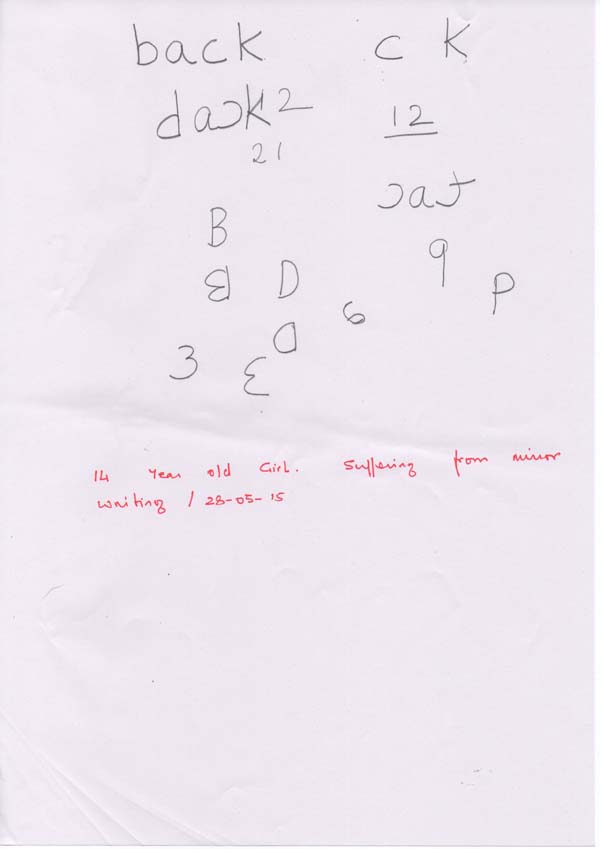 back c k
dack2 12
21
cat
B
B D 9 P
6
D
3 3
14 Year old Girl. Suffering from mirror
writing / 28-05-15